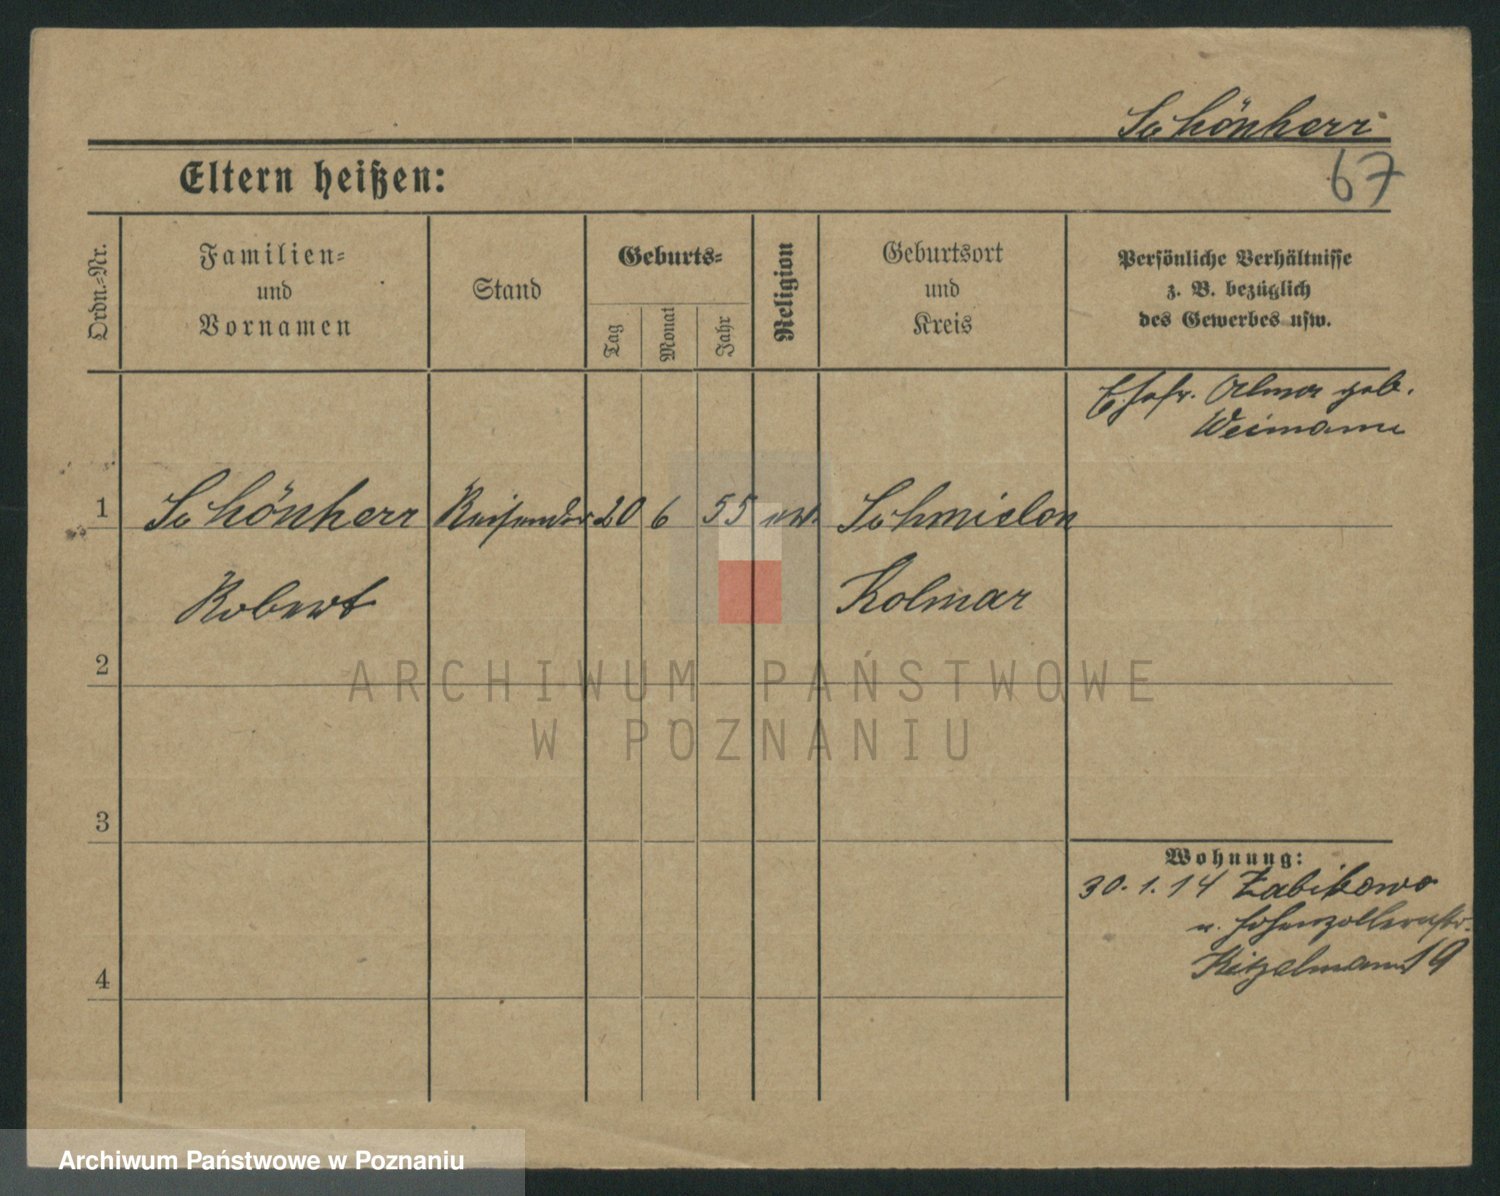 Schönherr
67
Eltern heißen:
Ordn.-Nr.
Familien-
und
Vornamen
Stand
Geburts-
Tag
Monat
Jahr
Religion
Geburtsort
und
Kreis
Persönliche Verhältnisse
z. B. bezüglich
des Gewerbes usw.
Ehefr. Alma geb.
Weimann
1 Schönherr Reisender 20 6 55 ev. Schmielon
Robert Kolmar
2
3
4
Wohnung:
30.1.14 Zabikowo
u. Hohenzollernstr.
Kitzelmann 19
ARCHIWUM PAŃSTWOWE
W POZNANIU
Archiwum Państwowe w Poznaniu